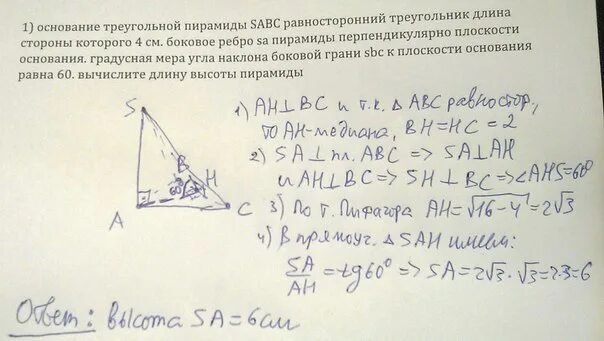 1) основание треугольной пирамиды SABC равносторонний треугольник длина
стороны которого 4 см. боковое ребро sa пирамиды перпендикулярно плоскости
основания. градусная мера угла наклона боковой грани sbc к плоскости основания
равна 60. вычислите длину высоты пирамиды
1) AH⊥BC и т.к. △ABC равностор,
то AH-медиана, BH=HC=2
2) SA⊥пл. ABC => SA⊥AH
и AH⊥BC => SH⊥BC => ∠AHS=60°
3) По т. Пифагора AH=√16-4=2√3
4) В прямоуг. △SAH имеем:
SA/AH = tg60° => SA=2√3·√3=2·3=6
S
B
60°
H
A
C
Ответ: высота SA=6см